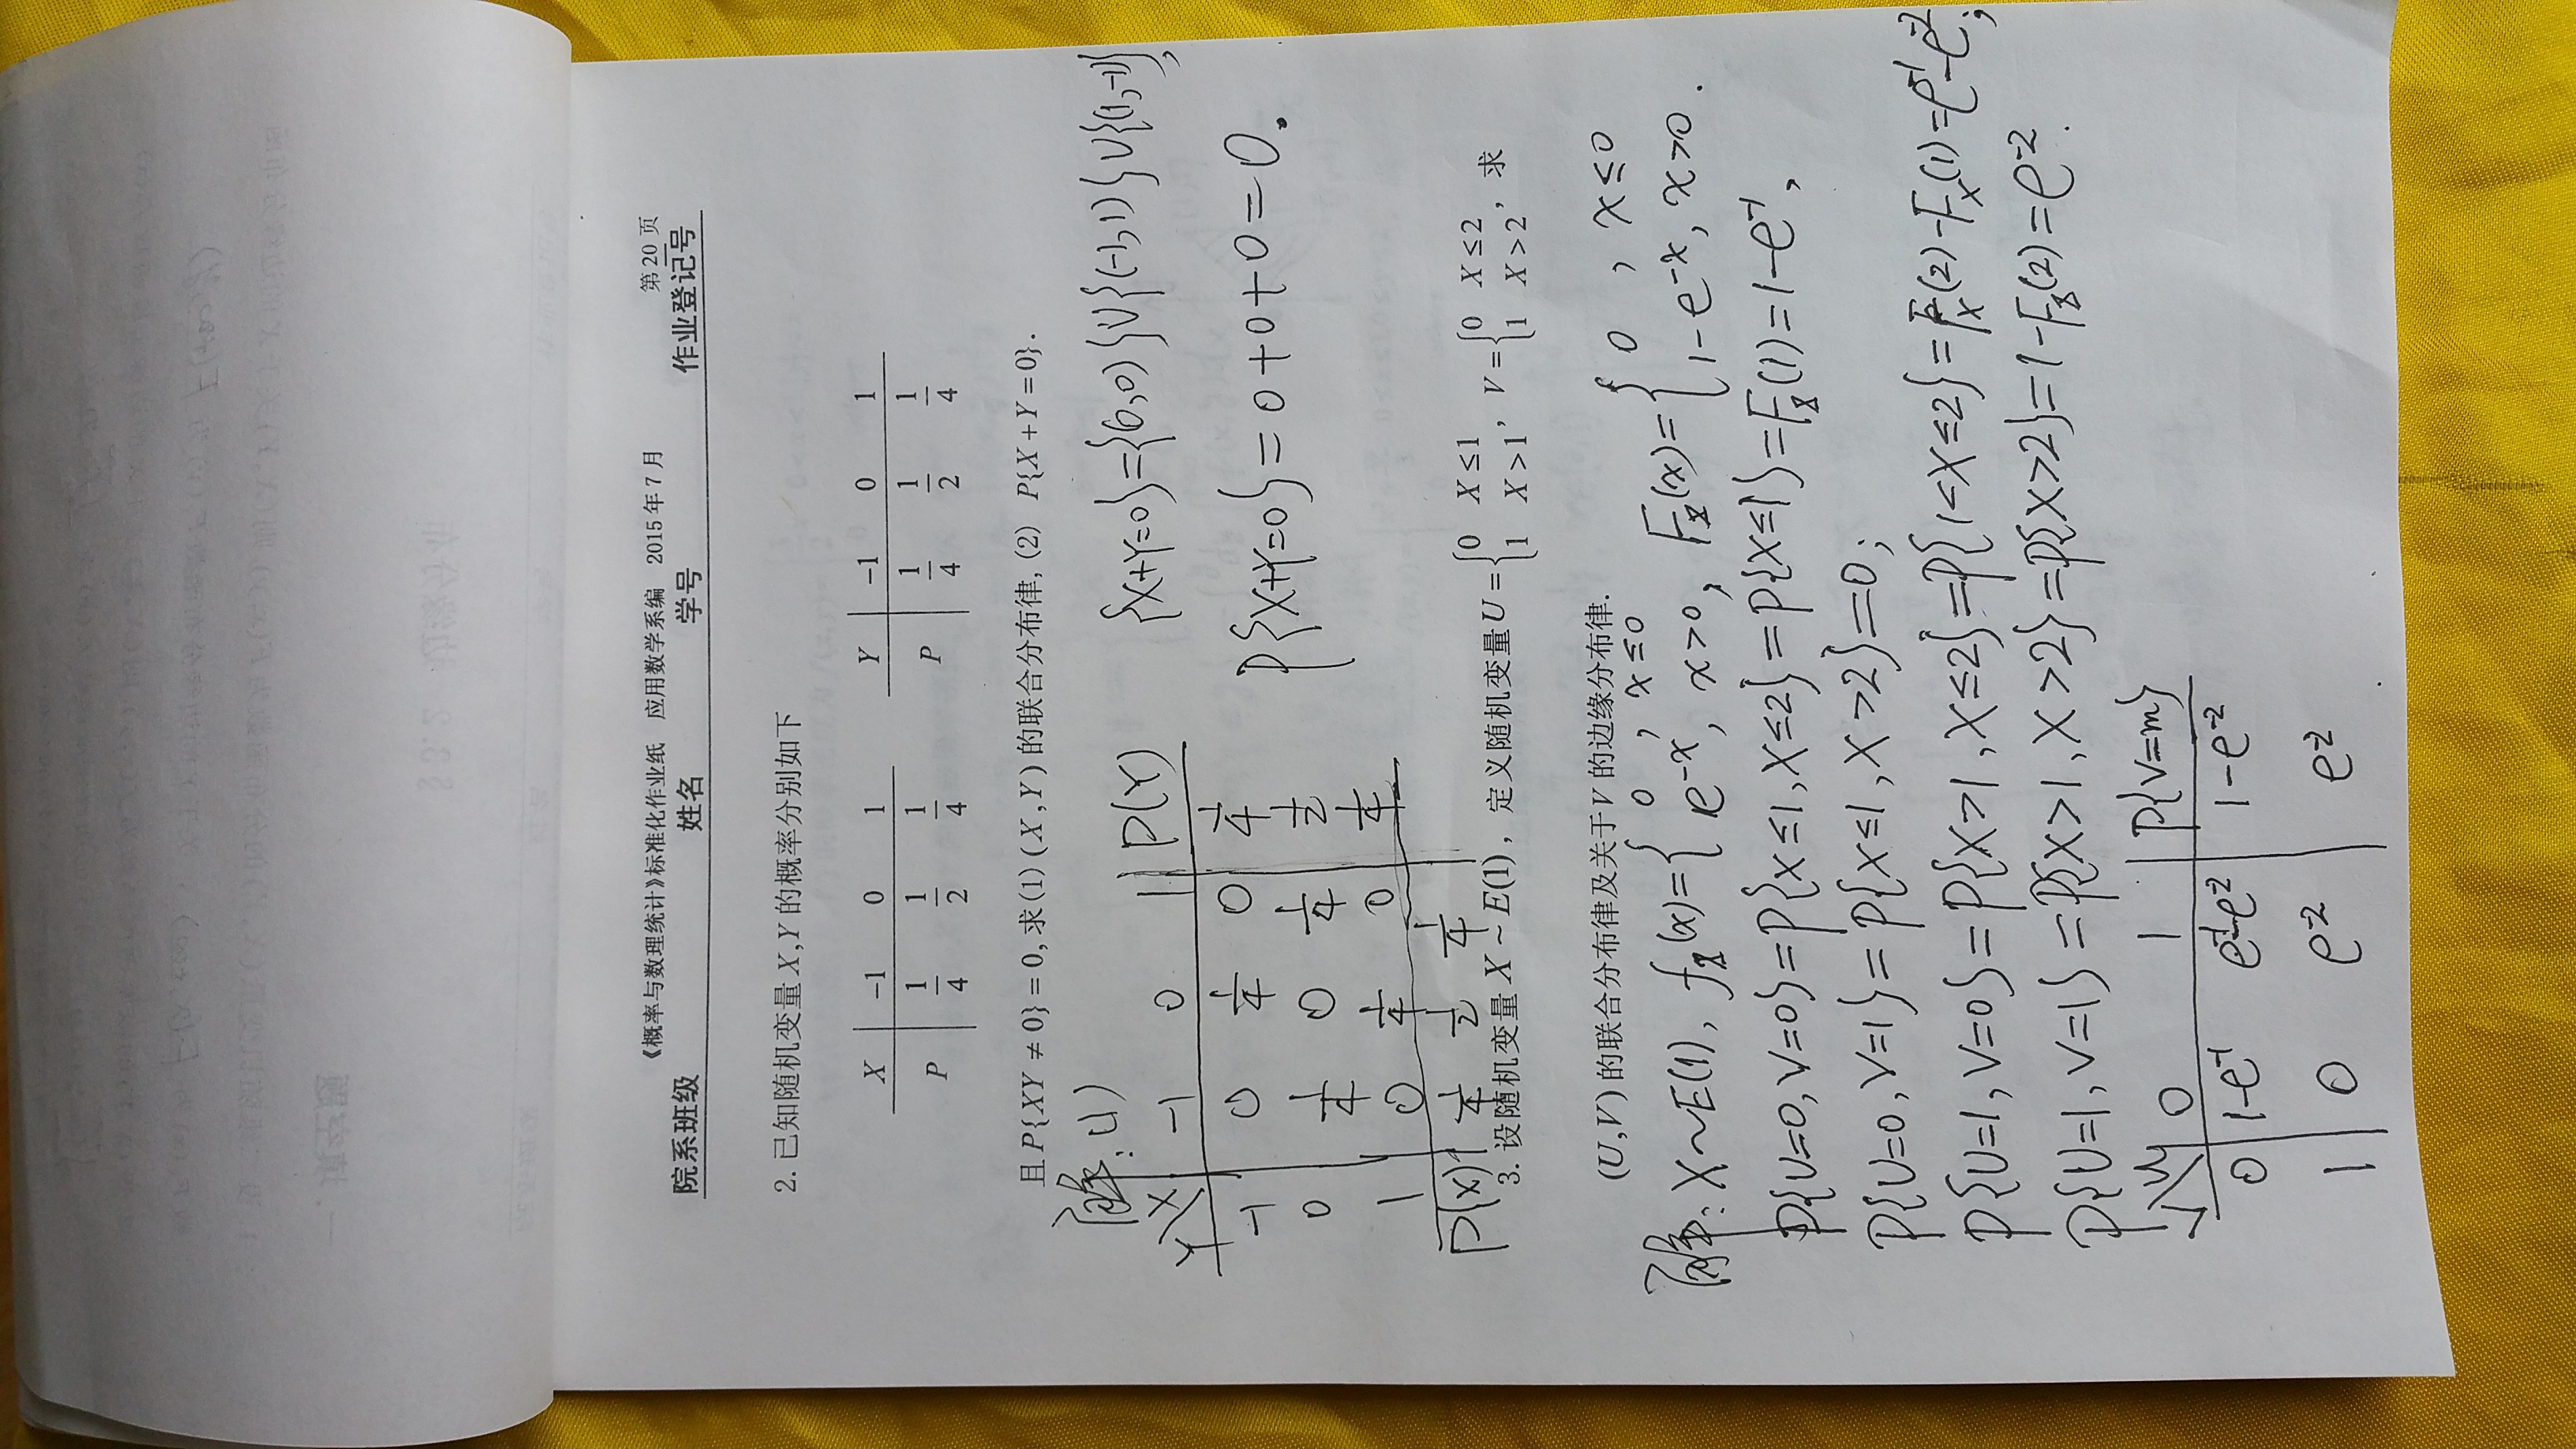 《概率与数理统计》标准化作业纸 应用数学系编 2015年7月 第20页
院系班级 姓名 学号 作业登记号
2. 已知随机变量X,Y的概率分别如下
X -1 0 1
P 1/4 1/2 1/4
Y -1 0 1
P 1/4 1/2 1/4
且P{XY≠0}=0,求(1)(X,Y)的联合分布律,(2) P{X+Y=0}.
解:(1)
Y\X -1 0 1 P(Y)
-1 0 1/4 0 1/4
0 1/4 0 1/4 1/2
1 0 1/4 0 1/4
P(X) 1/4 1/2 1/4
{X+Y=0}={(0,0)}∪{(-1,1)}∪{(1,-1)},
P{X+Y=0}=0+0+0=0.
3. 设随机变量X~E(1), 定义随机变量U={0 X≤1 1 X>1, V={0 X≤2 1 X>2, 求
(U,V)的联合分布律及关于V的边缘分布律.
解:X~E(1), f_X(x)={0, x≤0 e^{-x}, x>0, F_X(x)={0, x≤0 1-e^{-x}, x>0.
P{U=0,V=0}=P{X≤1,X≤2}=P{X≤1}=F_X(1)=1-e^{-1},
P{U=0,V=1}=P{X≤1,X>2}=0;
P{U=1,V=0}=P{X>1,X≤2}=P{1<X≤2}=F_X(2)-F_X(1)=e^{-1}-e^{-2};
P{U=1,V=1}=P{X>1,X>2}=P{X>2}=1-F_X(2)=e^{-2}.
V\U 0 1 P{V=m}
0 1-e^{-1} e^{-1}-e^{-2} 1-e^{-2}
1 0 e^{-2} e^{-2}